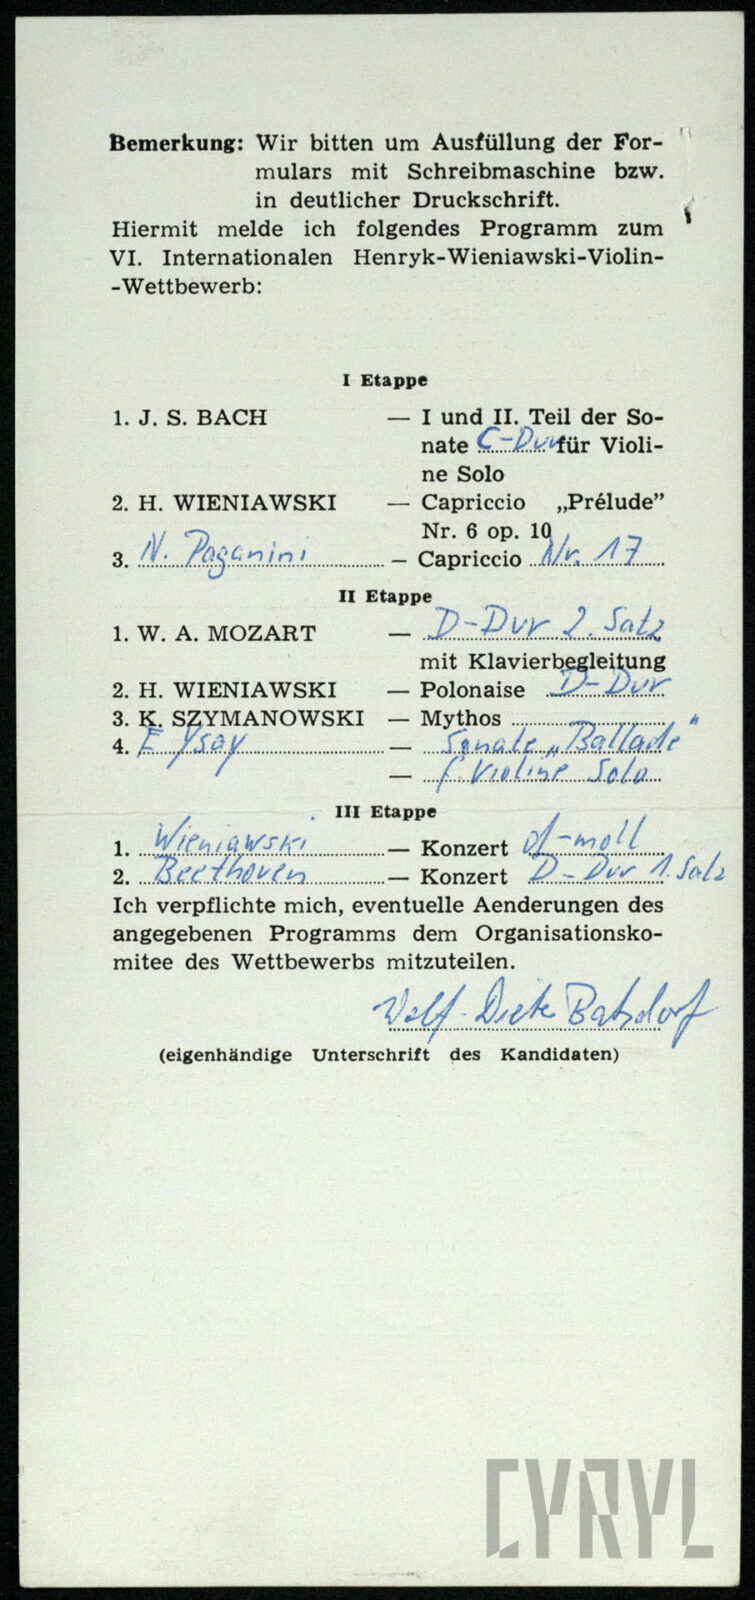 Bemerkung: Wir bitten um Ausfüllung der For-
mulars mit Schreibmaschine bzw.
in deutlicher Druckschrift.
Hiermit melde ich folgendes Programm zum
VI. Internationalen Henryk-Wieniawski-Violin-
-Wettbewerb:
I Etappe
1. J. S. BACH — I und II. Teil der So-
nate C-Dur für Violi-
ne Solo
2. H. WIENIAWSKI — Capriccio „Prélude”
Nr. 6 op. 10
3. N. Paganini — Capriccio Nr. 17
II Etappe
1. W. A. MOZART — D-Dur 2. Satz
mit Klavierbegleitung
2. H. WIENIAWSKI — Polonaise D-Dur
3. K. SZYMANOWSKI — Mythos
4. E Ysay — Sonate „Ballade"
— f. Violine Solo
III Etappe
1. Wieniawski — Konzert d-moll
2. Beethoven — Konzert D-Dur 1. Satz
Ich verpflichte mich, eventuelle Aenderungen des
angegebenen Programms dem Organisationsko-
mitee des Wettbewerbs mitzuteilen.
Wolf-Dieter Batzdorf
(eigenhändige Unterschrift des Kandidaten)
CYRYL